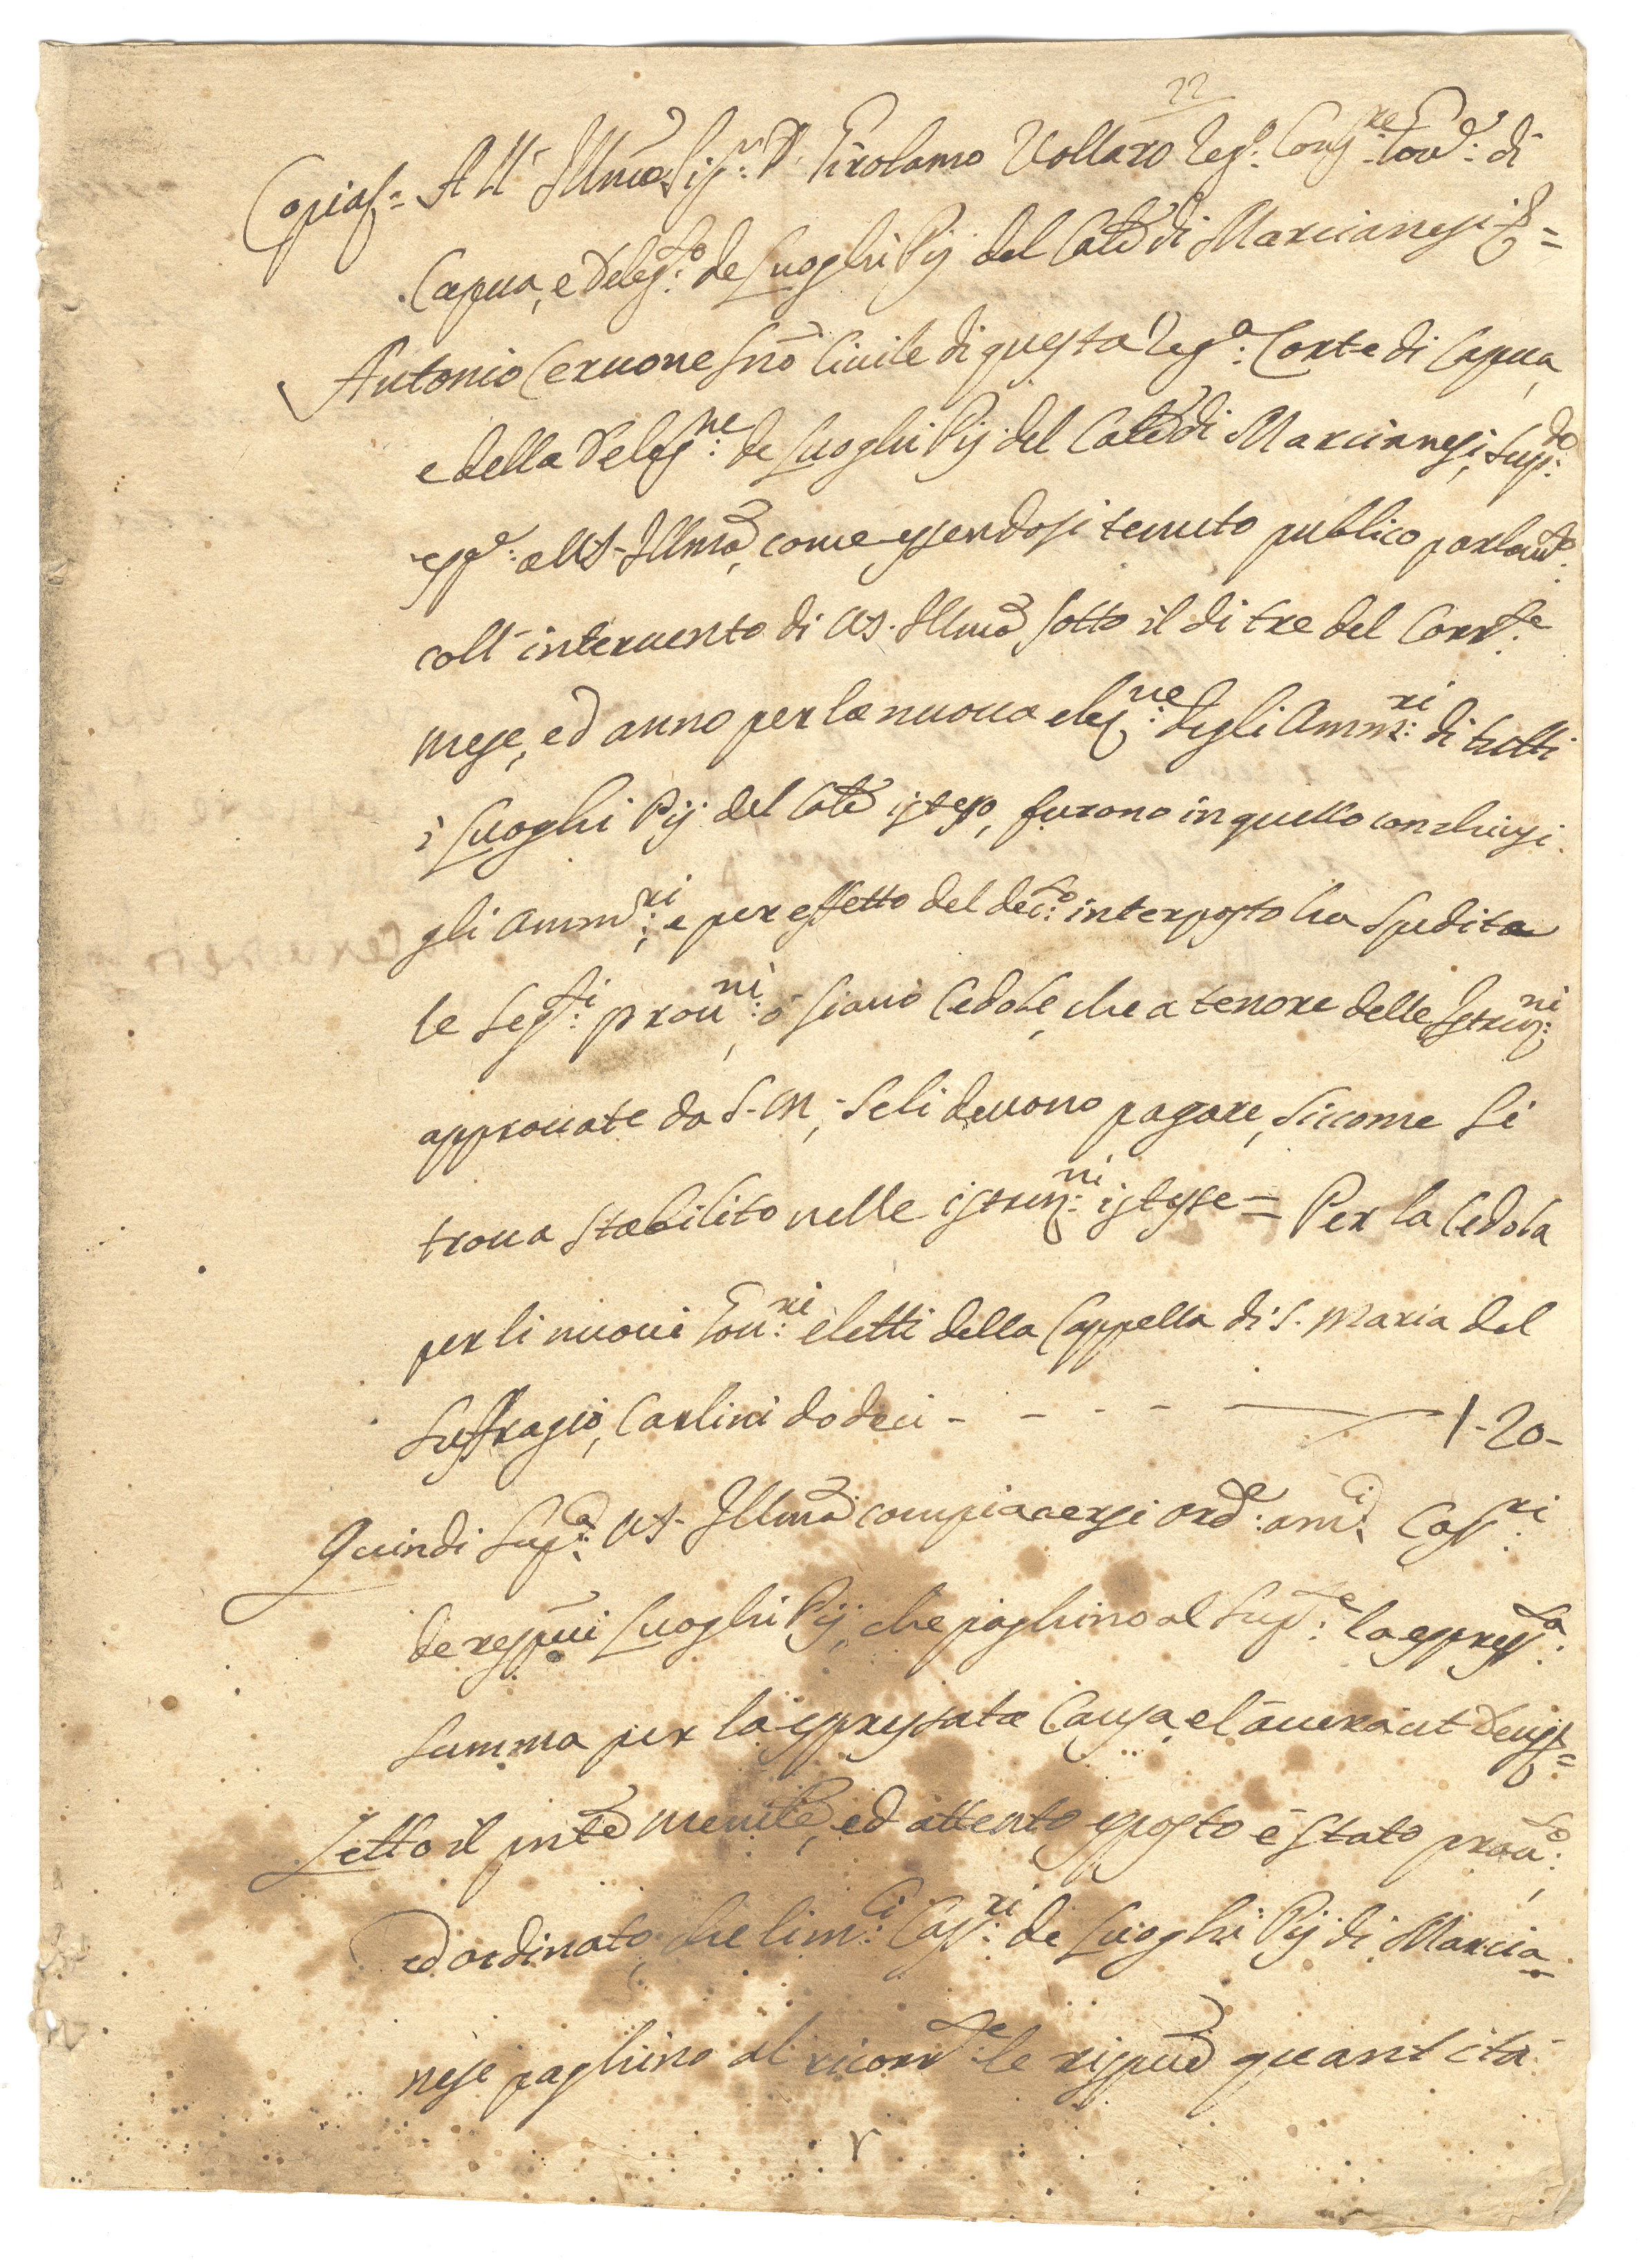 22
Copia = All' Illmo Sig:r D. Girolamo Vollaro Reg:o Cons:re Gov:e di
Capua, e Deleg:to de Luoghi Pij del Cale di Marcianesi =
Antonio Ceruone Srio Ciuile di questa Reg:a Corte di Capua,
e della Deleg:ne de Luoghi Pij del Cale di Marcianesi, sup:do
esp:e a US. Illma, come essendosi tenuto publico parlam:to
coll' interuento di US. Illma sotto il di tre del Corr:te
mese, ed anno per la nuoua elez:ne degli Amm:ri di tutti
i Luoghi Pij del Cale istesso, furono in quello conchiusi
gli Amm:ri; e per effetto del dec:to interposto ha spedita
le seg:ti prou:ni, o siano Cedole, che a tenore delle Istruz:ni
approuate da S. M., se li deuono pagare, siccome si
troua stabilito nelle istruz:ni istesse = Per la Cedola
per li nuoui Gou:ri eletti della Cappella di S. Maria del
Suffragio, Carlini dodeci - - - - 1-20-
Quindi sup:ca US. Illma compiacersi ord:e a m:ci Cass:ri
de respui Luoghi Pij, che paghino al sup:te la espress:ta
summa per la espressata Causa, e l'auerà ut Deus =
Letto il pnte memle, ed attento esposto è stato prou:to,
ed ordinato, che li m:ci Cass:ri de Luoghi Pij di Marcia=
nese paghino al ricorr:te le rispue quantità